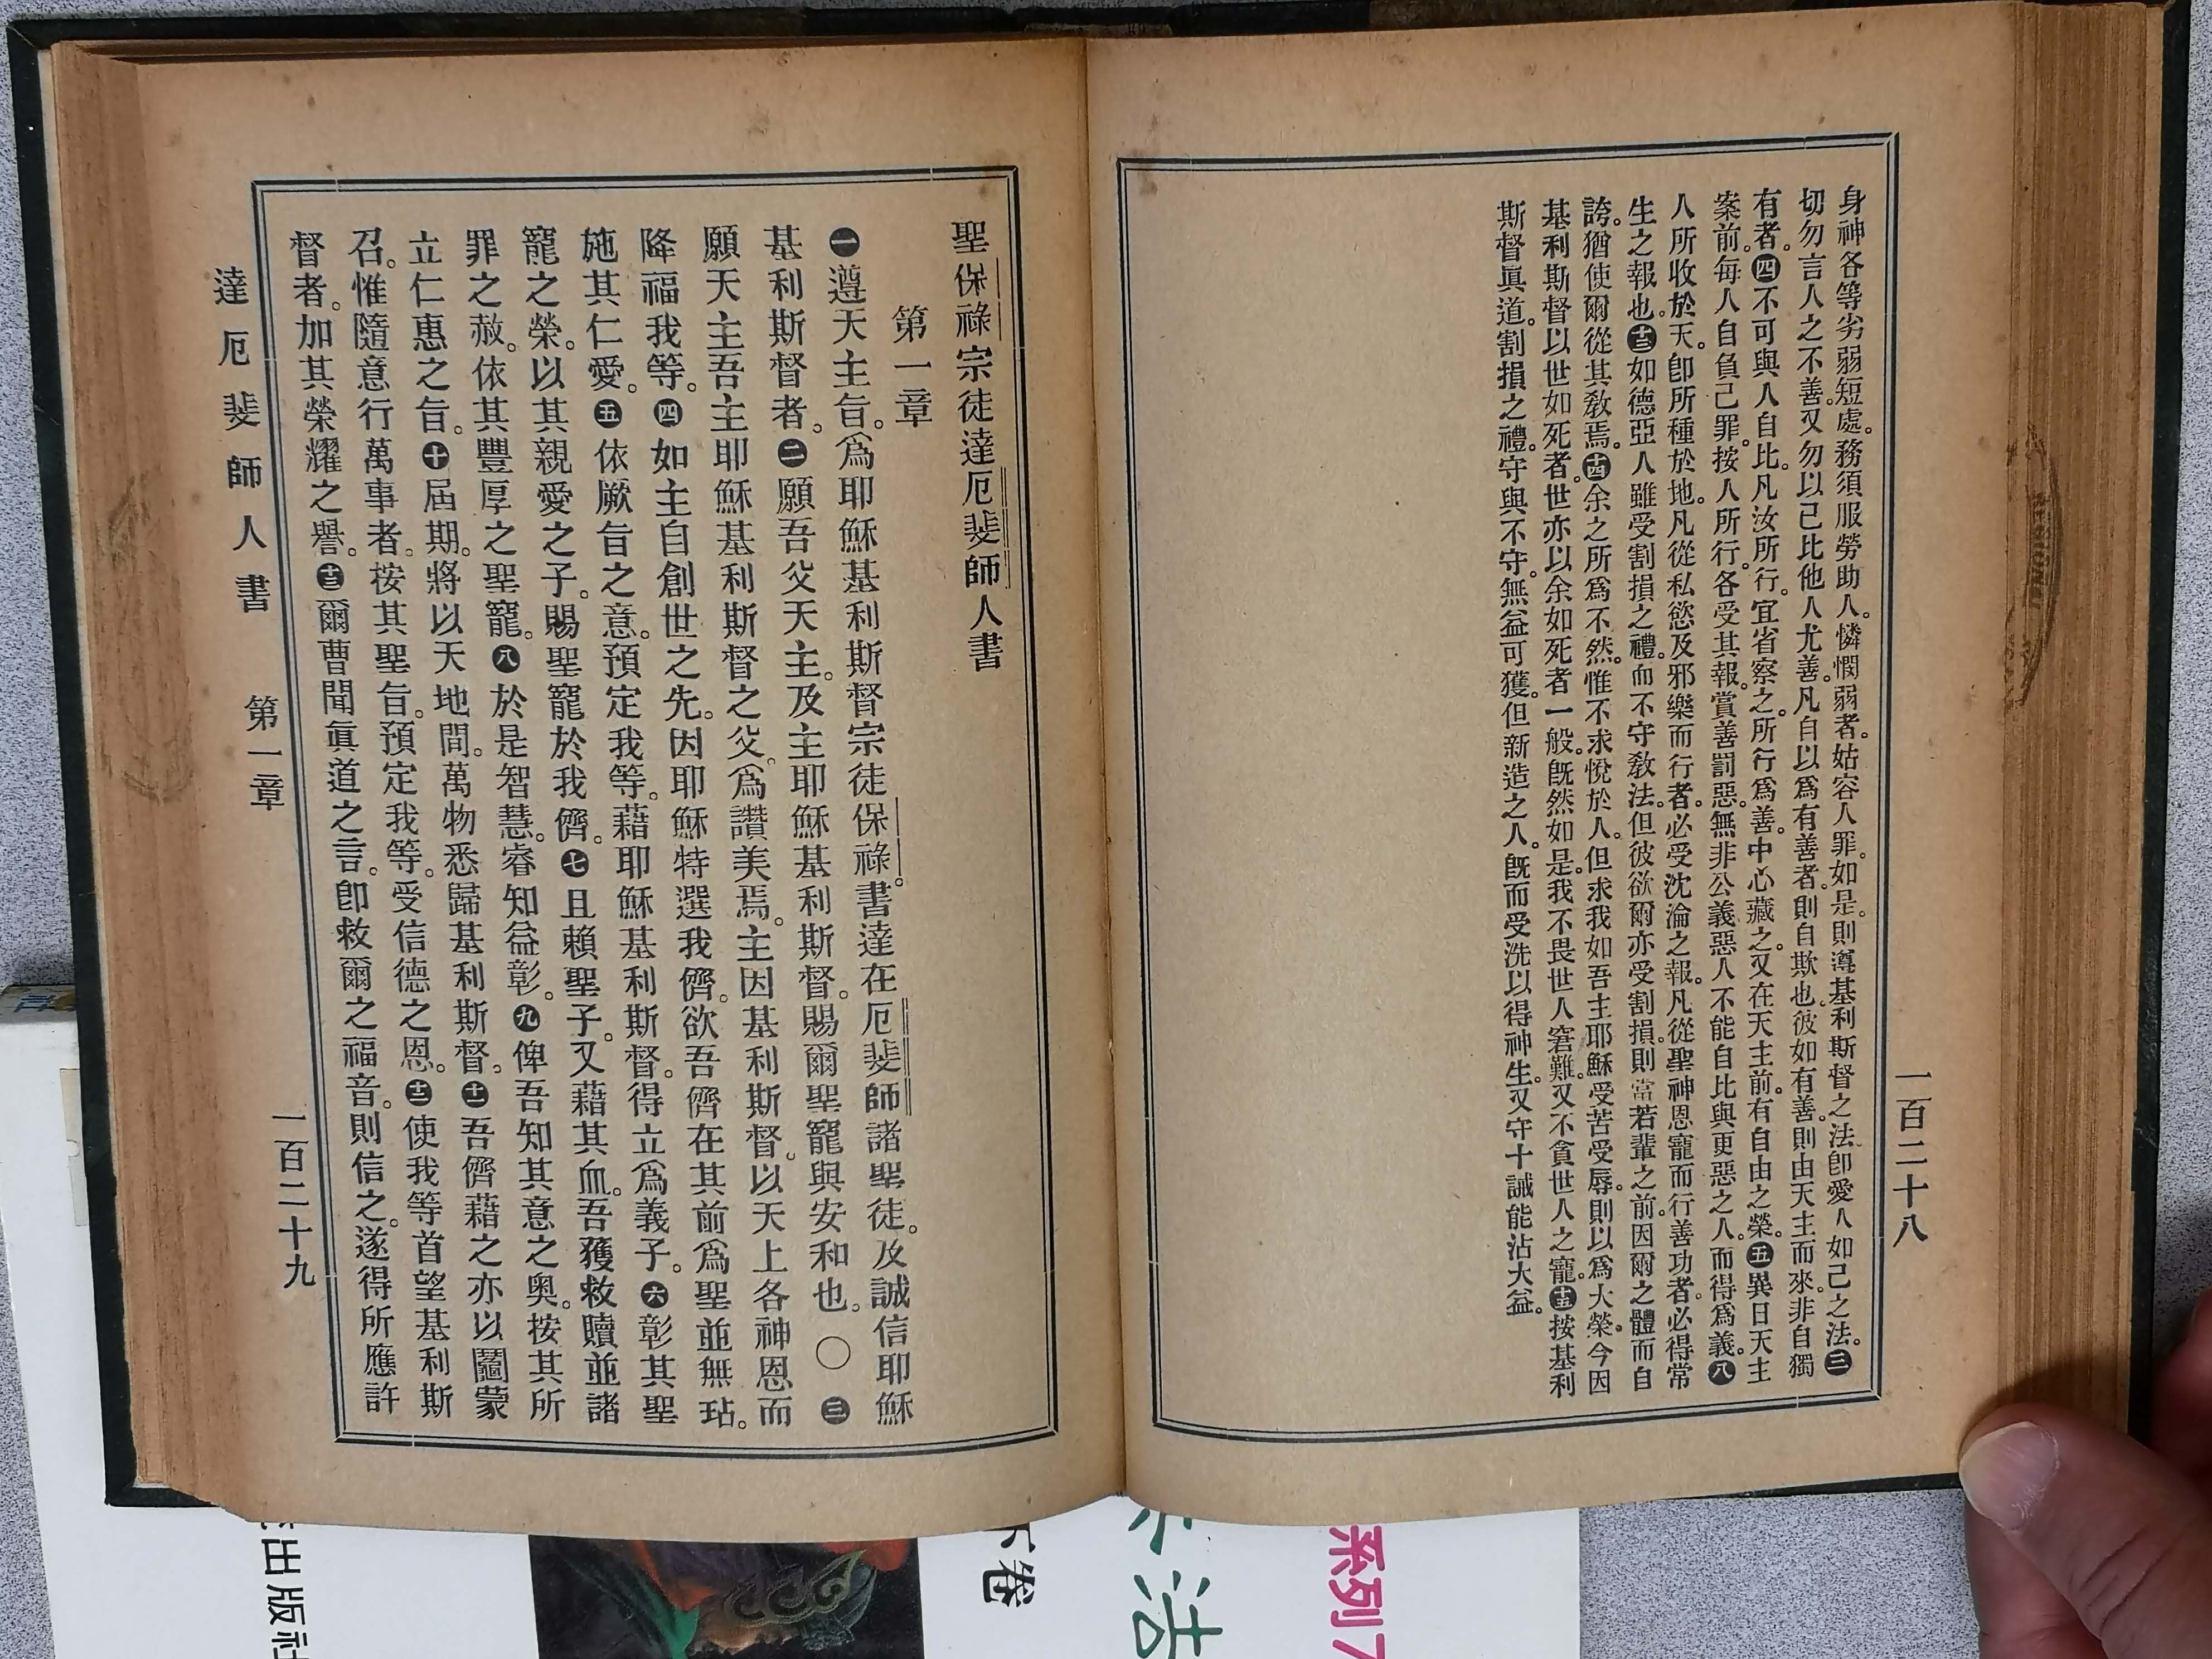 身神各等劣弱短處。務須服勞助人。憐憫弱者。姑容人罪。如是。則遵基利斯督之法。卽愛人如己之法。㊂
切勿言人之不善。又勿以己比他人尤善。凡自以爲有善者。則自欺也。彼如有善。則由天主而來。非自獨
有者。㊃不可與人自比。凡汝所行。宜省察之。所行爲善。中心藏之。又在天主前。有自由之榮。㊄異日天主
案前。每人自負己罪。按人所行。各受其報。賞善罰惡。無非公義。惡人不能自比與更惡之人。而得爲義。㊇
人所收於天。卽所種於地。凡從私慾及邪樂而行者。必受沈淪之報。凡從聖神恩寵而行善功者。必得常
生之報也。十三如德亞人雖受割損之禮。而不守敎法。但彼欲爾亦受割損。則當若輩之前。因爾之體而自
誇。猶使爾從其敎焉。十四余之所爲不然。惟不求悅於人。但求我如吾主耶穌受苦受辱。則以爲大榮。今因
基利斯督以世如死者。世亦以余如死者一般。旣然如是。我不畏世人窘難。又不貪世人之寵。十五按基利
斯督眞道。割損之禮。守與不守。無益可獲。但新造之人。旣而受洗以得神生。又守十誡能沾大益。
一百二十八
聖保祿宗徒達厄斐師人書
第一章
㊀遵天主旨。爲耶穌基利斯督宗徒保祿。書達在厄斐師諸聖徒。及誠信耶穌
基利斯督者。㊁願吾父天主。及主耶穌基利斯督。賜爾聖寵與安和也。〇㊂
願天主吾主耶穌基利斯督之父。爲讚美焉。主因基利斯督。以天上各神恩而
降福我等。㊃如主自創世之先。因耶穌特選我儕。欲吾儕在其前爲聖並無玷。
施其仁愛。㊄依厥旨之意。預定我等。藉耶穌基利斯督。得立爲義子。㊅彰其聖
寵之榮。以其親愛之子。賜聖寵於我儕。㊆且賴聖子。又藉其血。吾獲救贖並諸
罪之赦。依其豐厚之聖寵。㊇於是智慧。睿知益彰。㊈俾吾知其意之奧。按其所
立仁惠之旨。㊉屆期。將以天地間。萬物悉歸基利斯督。十一吾儕藉之亦以鬮蒙
召。惟隨意行萬事者。按其聖旨。預定我等。受信德之恩。十二使我等首望基利斯
督者。加其榮耀之譽。十三爾曹聞眞道之言。卽救爾之福音。則信之。遂得所應許
達厄斐師人書 第一章 一百二十九
出版社
下卷
法
系列7